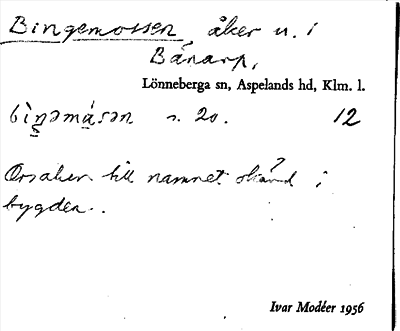 Bingemossen, åker u. i
Bånarp,
Lönneberga sn, Aspelands hd, Klm. l.
bìŋəmásən s. 20. 12
Orsaken till namnet okänd i
bygden.
Ivar Modéer 1956